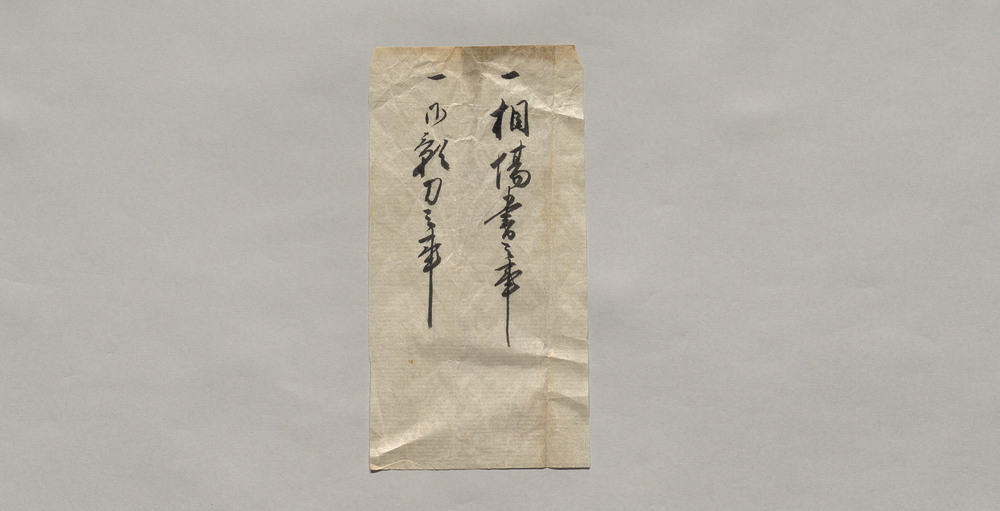 一相場書之事
一御彰刀之事